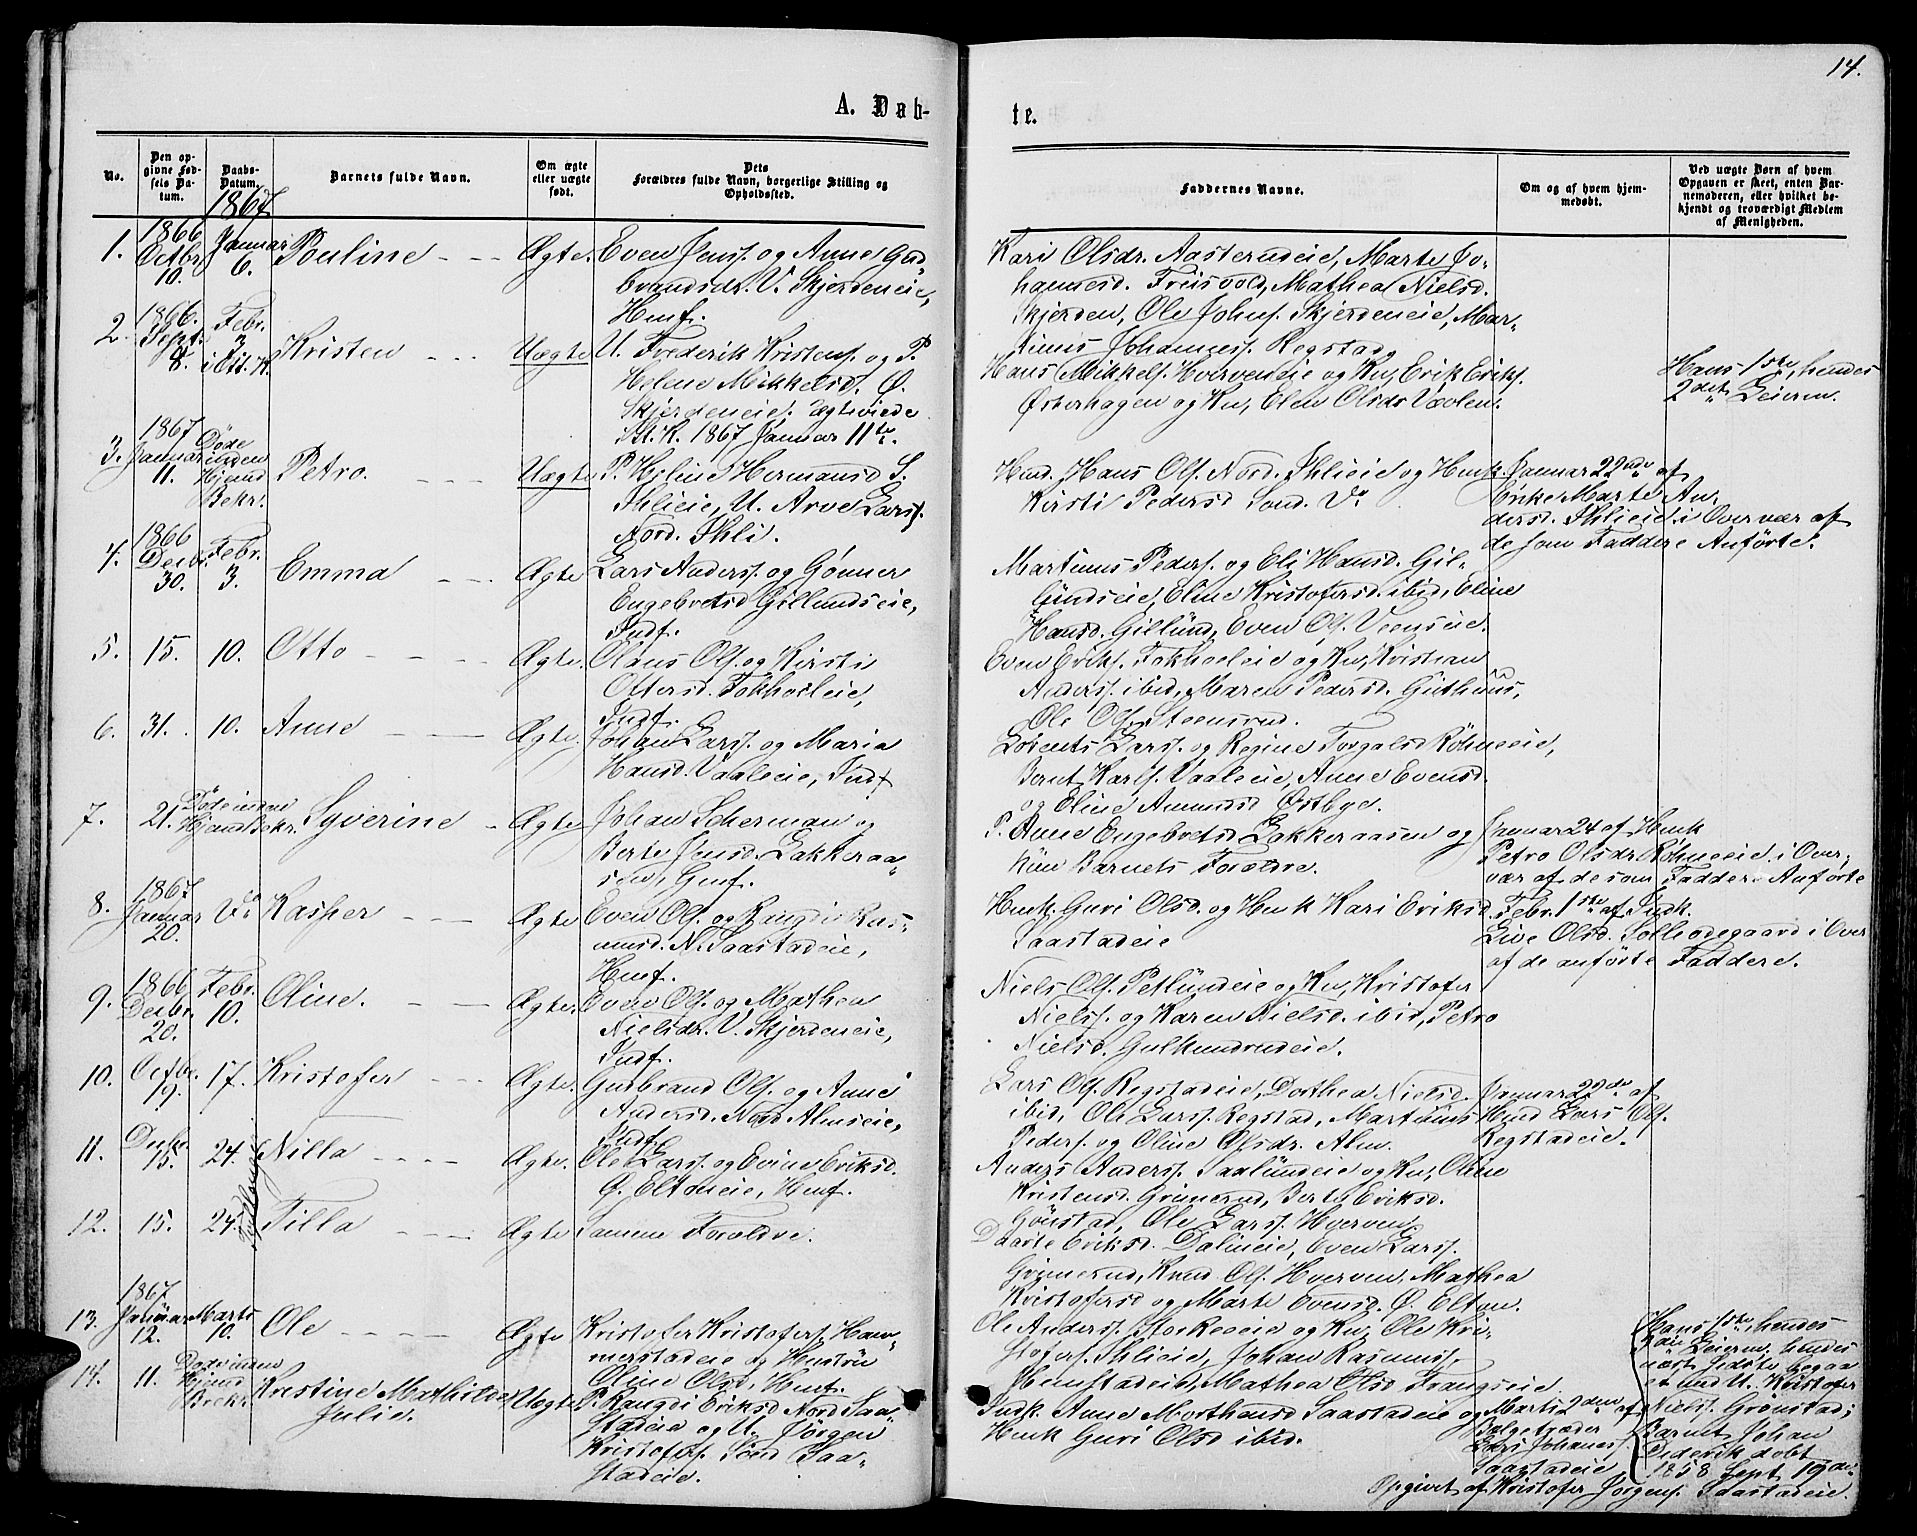 14.
A. Døb-
te.
No.
Den op-
givne Fød-
sels Da-
tum.
Daabs-
Datum.
1867
Barnets fulde Navn.
Om ægte
eller uægte
født.
Dets
Forældres fulde Navn, borgerlige Stilling og
Opholdssted.
Faddernes Navne.
Om og af hvem hjem-
medøbt.
Ved uægte Børn af hvem
Opgaven er skeet, enten Bar-
nemoderen, eller hvilket be-
kjendt og troværdigt Medlem
af Menigheden.
1.
1866
Octbr.
10.
Januar
6.
Pouline
Ægte.
Even Jenss. og Anne Gud
brandsdr. V. Skjerdeneie,
Hmf.
Kari Olsdr. Aasterudeie, Marte Jo-
hannesd. Freisvold, Mathea Nielsd.
Skjerden, Ole Johns. Skjerdeneie, Mar-
tinus Johanness. Regstad,
2.
1866.
Sept.
8.
Febr.
3
i St. K.
Kristen
Uægte
U. Frederik Kristens. og P.
Helene Mikkelsd. Ø.
Skjerdeneie. Ægteviede
i St. K. 1867 Januar 11te.
Hans Mikkels. Hverveneie og Kv, Erik Eriks.
Østerhagen og Kv, Elen Olsdr Vaalen.
Hans 1ste, hendes
2det Leierm.
3.
1867
Januar
11.
Døde
inden
Hjemd
Bekr.
Petro.
Uægte
P. Helene Hermansd S.
Ihlieie, U. Arve Larss.
Nord. Ihli.
Hmd. Hans Ols. Nord. Ihlieie og Hmk.
Kirsti Pedersd Sønd. Do
Januar 22nde af
Enke Marte An-
dersd. Ihlieie i Overvær af
de som Faddere Anførte.
4.
1866
Decbr.
30.
Febr.
3.
Emma
Ægte
Lars Anderss. og Gønner
Engebretsd Gillundseie,
Indf.
Martinus Peders. og Eli Hansd. Gil-
lundseie, Eline Kristofersd. ibid, Eline
Hansd. Gillund, Even Ols. Veenseie.
5.
15.
10.
Otto
Ægte.
Olaus Ols. og Kirsti
Ottersd. Fokholeie,
Indf.
Even Eriks. Fokholeie og Kv, Kristian
Anderss. ibid, Maren Pedersd. Guthuus,
Ole Ols. Steensrud.
6.
31.
10.
Anne
Ægte
Johan Larss. og Maria
Hansd. Vaaleie, Indf
Lorents Larss. og Regine Torgalsd Røhneeie,
Bernt Karls. Vaaleie, Anne Evensd.
og Eline Amundsd Østbye.
7.
21.
Døde inden
Hjemd Bekr.
Syverine
Ægte
Johan Scherman og
Berte Jensd. Lakkeraa
sen, Hmf.
P. Anne Engebretsd Lakkeraasen og
kun Barnets Forældre.
Januar 24 af Hmk
Petro Olsdr Røhneeie i Over-
vær af de som Faddere Anførte
8.
1867
Januar
20.
Do
Kasper
Ægte
Even Ols. og Rangdi Ras-
musd. N. Saastadeie,
Hmf.
Hmk. Guri Olsd. og Hmk Kari Eriksd.
Saastadeie
Febr. 1ste af Indk.
Live Olsd. Solleødegaard i Over
af de anførte Faddere.
9.
1866
Decbr.
20.
Febr.
10.
Oline.
Ægte.
Even Ols. og Mathea
Nielsdr. V. Skjerdeneie,
Indf.
Niels Ols. Petlundeie og Kv, Kristofer
Nielss. og Karen Nielsd. ibid, Petro
Nielsd. Gulkundrudeie.
10.
Octbr.
19.
17.
Kristofer
Ægte.
Gudbrand Ols. og Anne
Andersd. Nord Almseie,
Indf.
Lars Ols. Regstadeie, Dorthea Nielsd.
ibid, Ole Larss. Regstad, Martinus
Peders. og Oline Olsdr. Alm.
Januar 22de af
Hmd Lars Ols.
Regstadeie.
11.
Decbr.
15.
24.
Nilla
Ægte.
Ole Larss. og Eline Eriksd.
Ø. Eltoneie, Hmf.
Anders Anderss. Saalundeie og Kv, Oline
Kristensd. Grimerud, Berte Eriksd.
Gønstad, Ole Larss. Hverven.
12.
15.
24.
Tvillinger
Tilla
Ægte
Samme Forældre.
Daarte Eriksd. Dalineie, Even Larss.
Grimerud, Knud Ols. Hverven, Mathea
Kristofersd og Marte Evensd. Ø. Elton.
13.
1867
Januar
12.
Marts
10.
Ole
Ægte
Kristofer Kristofers. Ham-
merstadeie og Hustru
Oline Olsd, Hmf.
Ole Anderss. Storkeeie og Kv, Ole Kri-
stofers. Ihlieie, Johan Rasmuss.
Hemstadeie, Mathea Olsd Frangseie
14.
11.
Døde inden
Hjemd
Bekr.
Kristine Mathilde
Julie.
Uægte
P. Rangdi Eriksd Nord Saa-
stadeie og U. Jørgen
Kristofers. Sønd Saa-
stadeie.
Indk. Anne Morthensd Saastadeie og
Hmk Guri Olsd ibid.
Marts 2den af
Lars Johaness.
Saastadeie
Hans 1ste, hendes
3die Leierm, hendes
næst sidste begaa
et med U. Kristofer
Nielss. Grønstad;
Barnet Johan
Diderik døbt
1858 Sept 19de.
Opgivet af Kristofer Jørgens. Saastadeie.